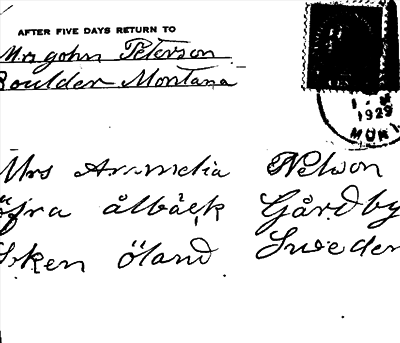 AFTER FIVE DAYS RETURN TO
Mrs John Peterson
Boulder Montana
1929
MON
Mrs Nelson
öfra ålbäck Gårdby
öland Sweden